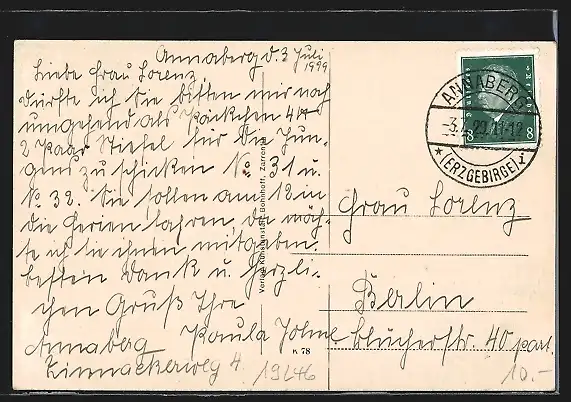 Annaberg d. 3 Juli
1929
Liebe Frau Lorenz,
dürfte ich Sie bitten mir noch
umgehend als Päckchen
2 Paar Stiefel für die Jun-
gens zu schicken No. 31 u.
No 32. Sie sollen am 12 in
die Ferien fahren, da möch-
te ich sie ihnen mitgeben.
besten Dank u. herzli-
chen Gruß Ihre
Paula
Annaberg
4.
19246
Verlag Kunstanstalt Bohnhoff, Zarrentin
K 78
ANNABERG
-3.7.29.11-12
* (ERZGEBIRGE) i
8 8
Frau Lorenz
Berlin
Blücherstr. 40 part.
10.-